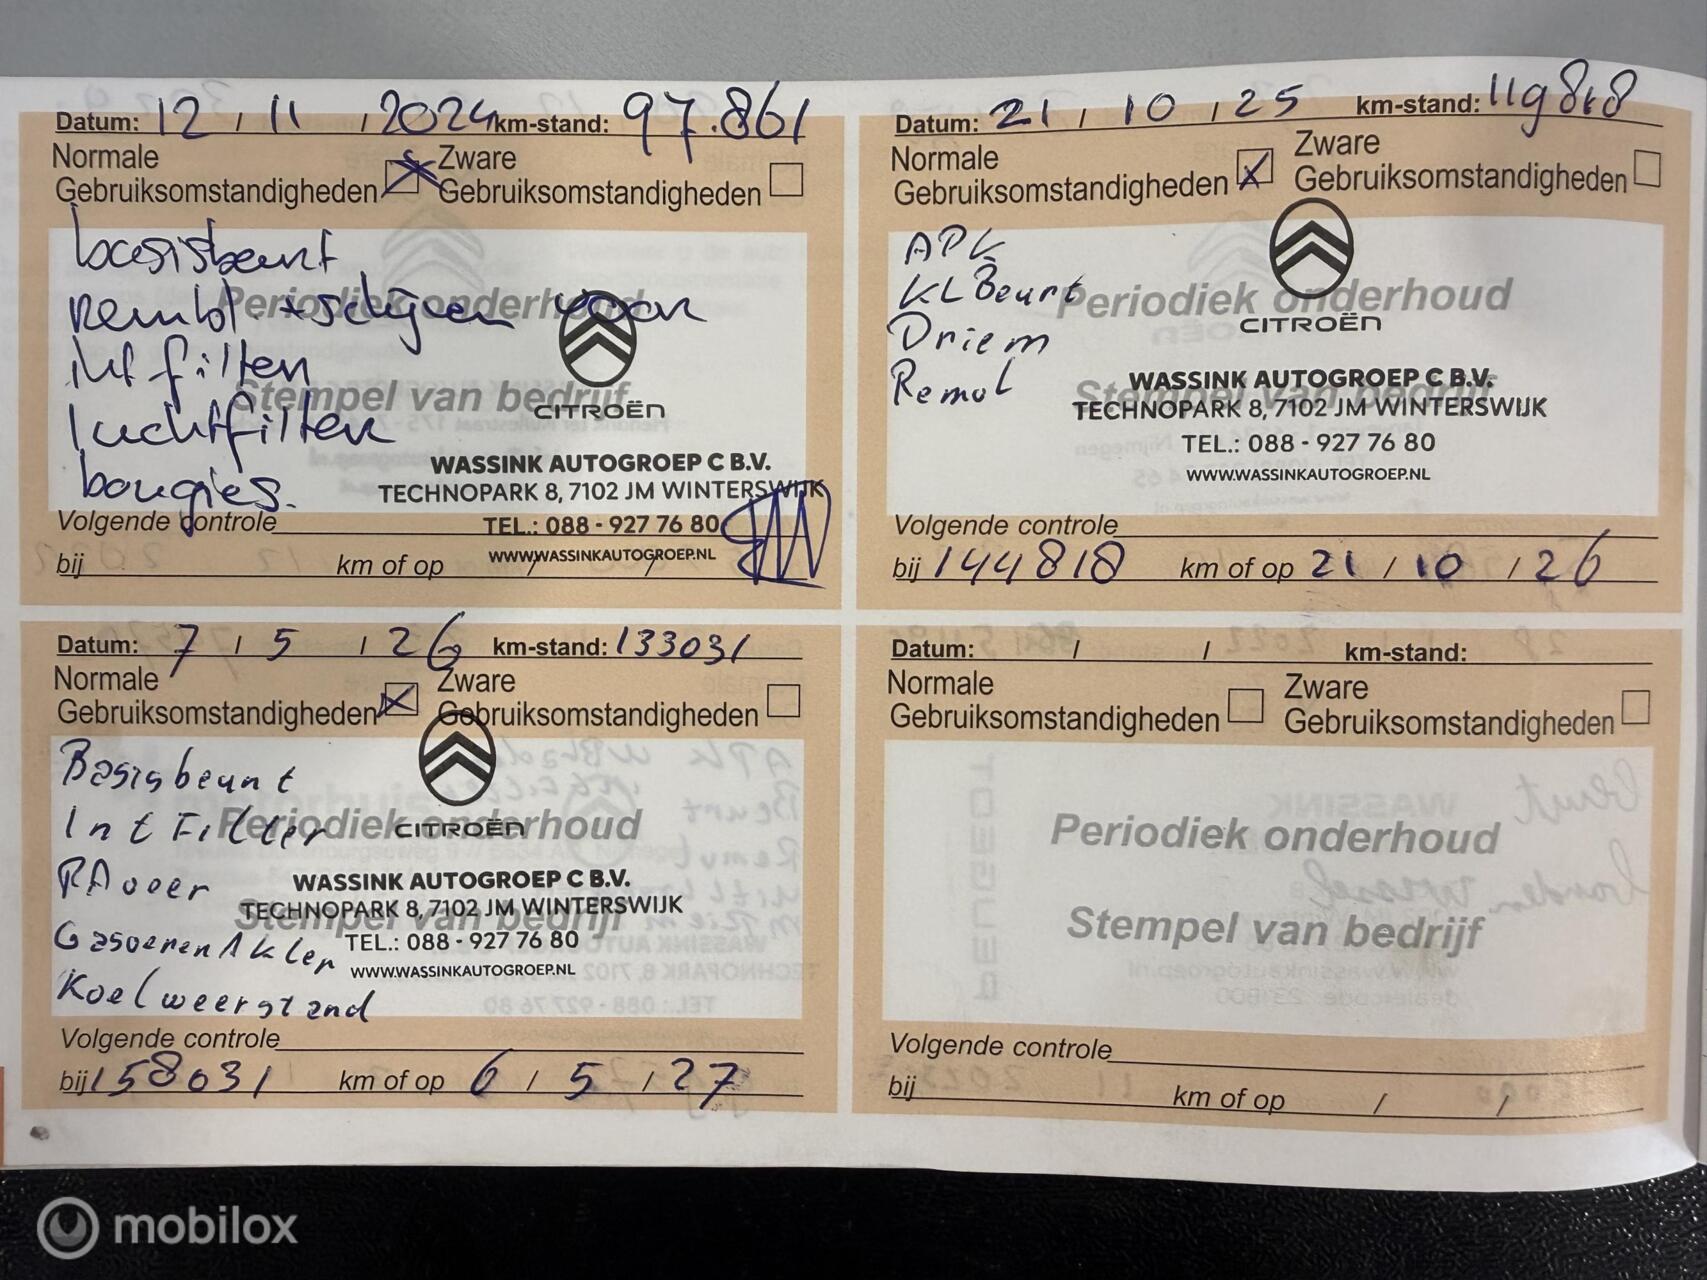 Datum: 12 / 11 / 2024 km-stand: 97.861
Normale Gebruiksomstandigheden
Zware Gebruiksomstandigheden
basisbeurt
rembl. + schijven voor
int filter
luchtfilter
bougies.
Periodiek onderhoud
Stempel van bedrijf
CITROËN
WASSINK AUTOGROEP C B.V.
TECHNOPARK 8, 7102 JM WINTERSWIJK
TEL.: 088 - 927 76 80
WWW.WASSINKAUTOGROEP.NL
Volgende controle
bij km of op / /
Datum: 21 / 10 / 25 km-stand: 119818
Normale Gebruiksomstandigheden
Zware Gebruiksomstandigheden
APK
KL Beurt
Driem
Remol
Periodiek onderhoud
Stempel van bedrijf
CITROËN
WASSINK AUTOGROEP C B.V.
TECHNOPARK 8, 7102 JM WINTERSWIJK
TEL.: 088 - 927 76 80
WWW.WASSINKAUTOGROEP.NL
Volgende controle
bij 144818 km of op 21 / 10 / 26
Datum: 7 / 5 / 26 km-stand: 133031
Normale Gebruiksomstandigheden
Zware Gebruiksomstandigheden
Basisbeurt
Int Filter
RA voer
Koelweerstand
Periodiek onderhoud
Stempel van bedrijf
CITROËN
WASSINK AUTOGROEP C B.V.
TECHNOPARK 8, 7102 JM WINTERSWIJK
TEL.: 088 - 927 76 80
WWW.WASSINKAUTOGROEP.NL
Volgende controle
bij 158031 km of op 6 / 5 / 27
Datum: / / km-stand:
Normale Gebruiksomstandigheden
Zware Gebruiksomstandigheden
Periodiek onderhoud
Stempel van bedrijf
Volgende controle
bij km of op / /
mobilox